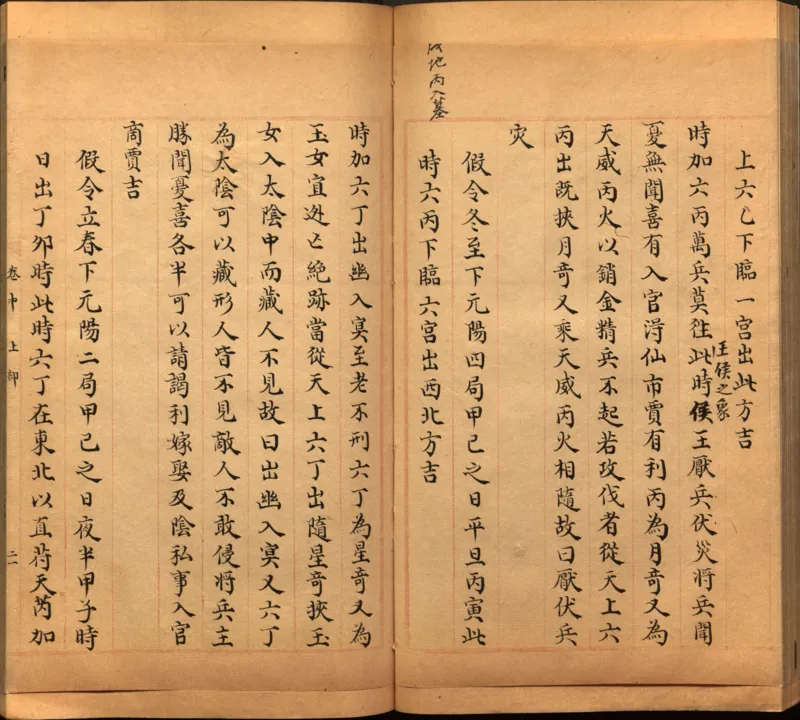 戌地丙入墓
上六乙下臨一宮出此方吉
時加六丙萬兵莫往此時侯王厭兵伏災將兵聞
王侯之象
憂無聞喜有入官得仙市賈有利丙為月奇又為
天威丙火以銷金精兵不起若攻伐者從天上六
丙出既挾月奇又乘天威丙火相隨故曰厭伏兵
灾
假令冬至下元陽四局甲己之日平旦丙寅此
時六丙下臨六宮出西北方吉
時加六丁出幽入冥至老不刑六丁為星奇又為
玉女宜逃亡絕跡當從天上六丁出隨星奇挾玉
女入太陰中而藏人不見故曰出幽入冥又六丁
為太陰可以藏形人皆不見敵人不敢侵將兵主
勝聞憂喜各半可以請謁利嫁娶及陰私事入官
商賈吉
假令立春下元陽二局甲己之日夜半甲子時
日出丁卯時此時六丁在東北以直符天芮加
卷中上
二